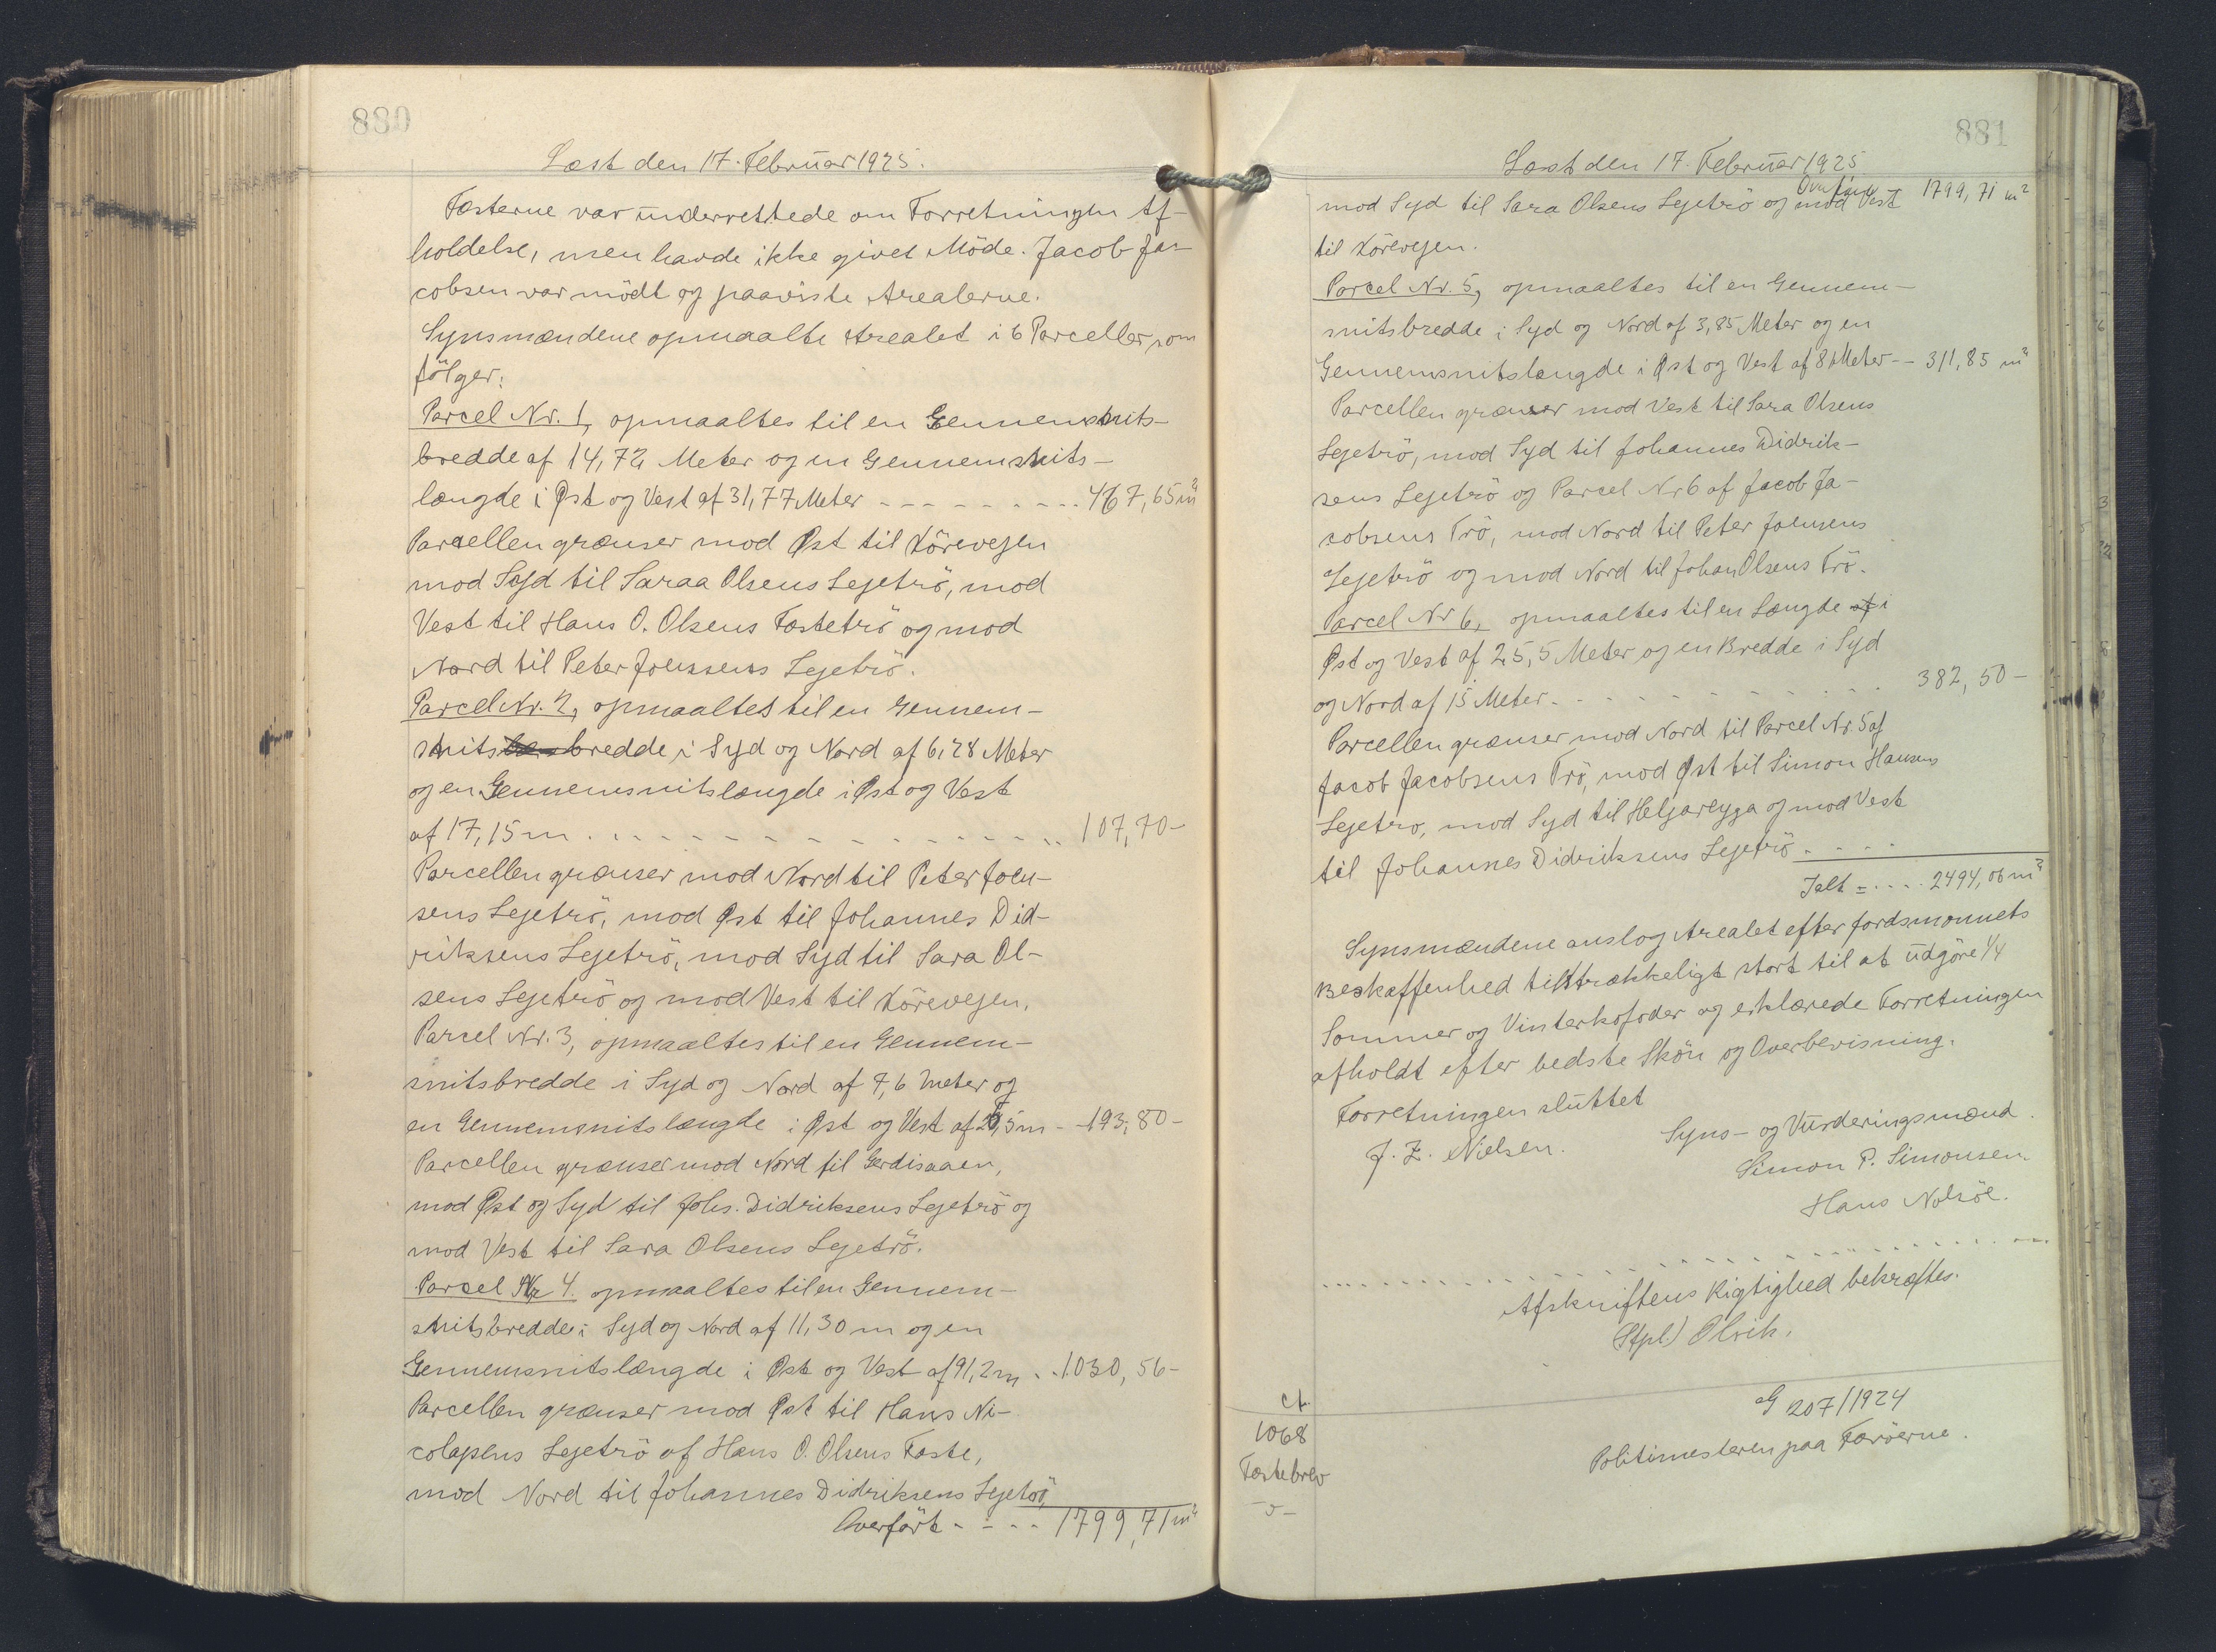 880
Læst den 17. Februar 1925.
Fæsterne var underrettede om Forretningen Af-
holdelse, men havde ikke givet Möde. Jacob Ja-
cobsen var mödt og paaviste Arealerne.
Synsmændene opmaalte Arealet i 6 Parceller, som
fölger:
Parcel Nr. 1, opmaaltes til en Gennemsnits-
bredde af 14,72 Meter og en Gennemsnits-
længde i Øst og Vest af 31,77 Meter - - - - - - - - - 467,65 m²
Parcellen grænser mod Øst til Körevejen
mod Syd til Saraa Olsens Lejetrö, mod
Vest til Hans O. Olsens Fæstetrö og mod
Nord til Peter Joensens Lejetrö.
Parcel Nr. 2, opmaaltes til en Gennem-
snitsbredde i Syd og Nord af 6,28 Meter
og en Gennemsnitslængde i Øst og Vest
af 17,15 m . . . - - - - - - - - - - - - - 107,70 -
Parcellen grænser mod Nord til Peter Joen-
sens Lejetrö, mod Øst til Johannes Did-
riksens Lejetrö, mod Syd til Sara Ol-
sens Lejetrö og mod Vest til Körevejen.
Parcel Nr. 3, opmaaltes til en Gennem-
snitsbredde i Syd og Nord af 7,6 Meter og
en Gennemsnitslængde i Øst og Vest af 25,5 m - - 193,80 -
Parcellen grænser mod Nord til Gerdisaaen,
mod Øst og Syd til Johs. Didriksens Lejetrö og
mod Vest til Sara Olsens Lejetrö.
Parcel Nr 4. opmaaltes til en Gennem-
snitsbredde i Syd og Nord af 11,30 m og en
Gennemsnitslængde i Øst og Vest af 91,2 m . . 1030,56 -
Parcellen grænser mod Øst til Hans Ni-
colajsens Lejetrö af Hans O. Olsens Fæste,
mod Nord til Johannes Didriksens Lejetrö,
Overfört - - - - 1799,71 m²
881
Læst den 17. Februar 1925
Overfört 1799,71 m²
mod Syd til Sara Olsens Lejetrö og mod Vest
til Körevejen.
Parcel Nr. 5, opmaaltes til en Gennem-
snitsbredde i Syd og Nord af 3,85 Meter og en
Gennemsnitslængde i Øst og Vest af 81 Meter - - 311,85 m²
Parcellen grænser mod Vest til Sara Olsens
Lejetrö, mod Syd til Johannes Didrik-
sens Lejetrö og Parcel Nr 6 af Jacob Ja-
cobsens Trö, mod Nord til Peter Joensens
Lejetrö og mod Nord til Johan Olsens Trö.
Parcel Nr 6, opmaaltes til en Længde af i
Øst og Vest af 25,5 Meter og en Bredde i Syd
og Nord af 15 Meter - - - - - - - - - - - 382,50 -
Parcellen grænser mod Nord til Parcel Nr. 5 af
Jacob Jacobsens Trö, mod Øst til Simon Hansens
Lejetro, mod Syd til Heljareyga og mod Vest
til Johannes Didriksens Lejetrö - - - -
Ialt = - - - - 2494,06 m²
Synsmændene anslog Arealet efter Jordsmonnets
Beskaffenhed tilstrækkeligt stort til at udgöre 1/4
Sommer og Vinterkofoder og erklærede Forretningen
afholdt efter bedste Skön og Overbevisning.
Forretningen sluttet
J. Z. Nielsen.
Syns- og Vurderingsmænd.
Simon P. Simonsen
Hans Nolsöe.
Afskriftens Rigtighed bekræftes.
(Stpl.) Olrik.
G 207/1924
Politimesteren paa Færöerne.
1068
Fæstebrev